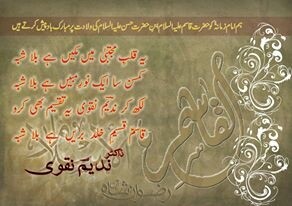 ہم امام زمانہؑ کو حضرت قاسم علیہ السلام ابن حضرت حسن علیہ السلام کی ولادت پر مبارک باد پیش کرتے ہیں
یہ قلب مجتبیٰ میں مکیں ہے بلا شبہ
کمسن سا ایک نور مبیں ہے بلا شبہ
لکھ کر ندیم نقوی یہ تقسیم بھی کرو
قاسم قسیم خلد بریں ہے بلا شبہ
ڈاکٹر
ندیم نقوی
القاسم